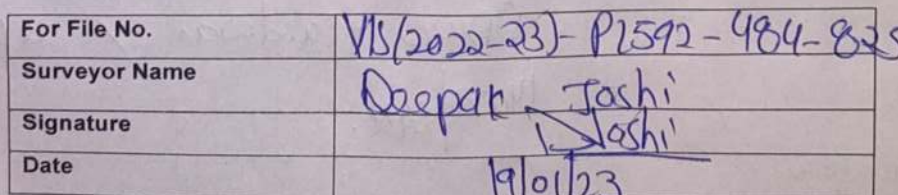 For File No. VIS(2022-23)-PL592-484-825
Surveyor Name Deepak Joshi
Signature Joshi
Date 19/01/23